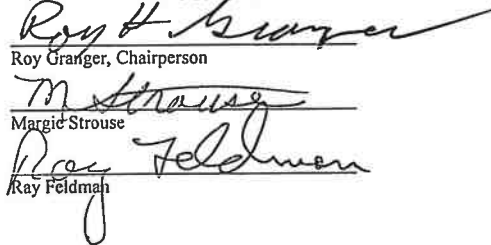 Roy H Granger
Roy Granger, Chairperson
M Strouse
Margie Strouse
Ray Feldman
Ray Feldman